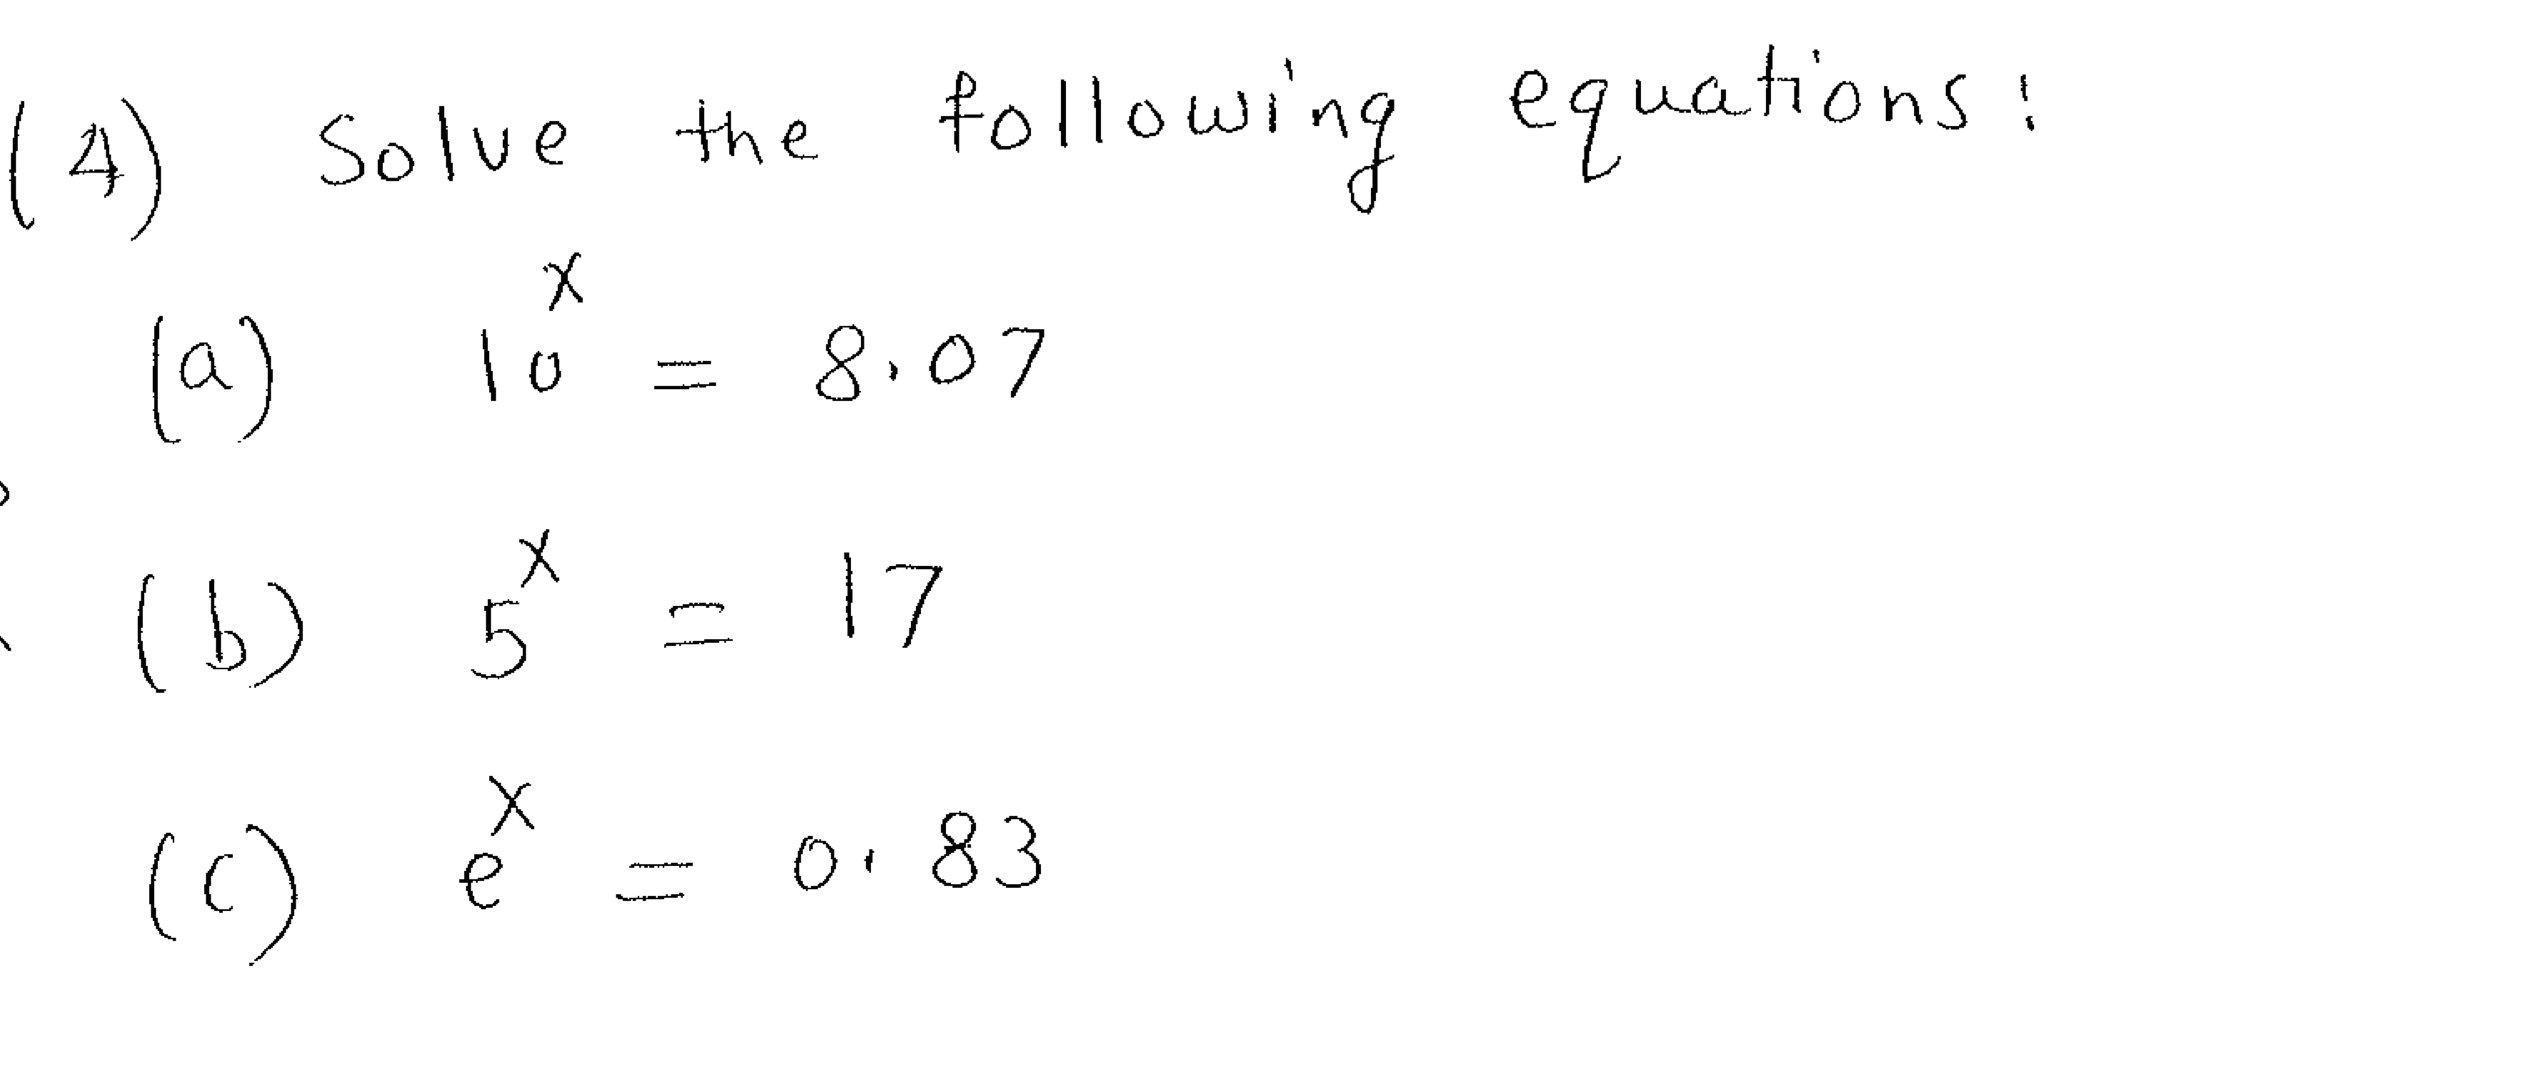 (4) Solve the following equations:
(a) 10^x = 8.07
(b) 5^x = 17
(c) e^x = 0.83